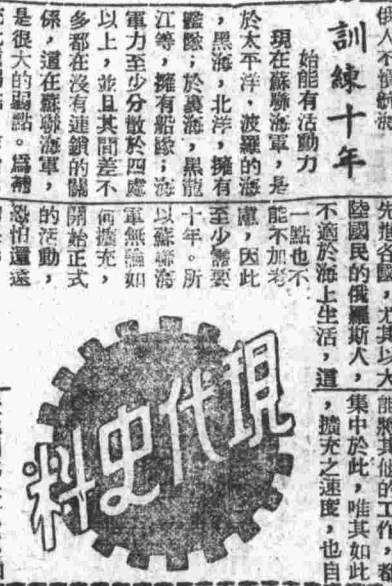 訓練十年
始能有活動力
現在蘇聯海軍,是
於太平洋,波羅的海
,黑海,北洋,擁有
艦隊;於裏海,黑龍
江等,擁有船隊;海
軍力至少分散於四處
以上,並且其間差不
多都在沒有連鎖的關
係,這在蘇聯海軍,
是很大的弱點。爲補
先進各國,尤其以大
陸國民的俄羅斯人,
不適於海上生活,這
一點也不
能不加考
慮,因此
至少需要
十年。所
以蘇聯海
軍無論如
何擴充,
開始正式
的活動,
恐怕還遠
能將其他的工作,
集中於此,唯其如此
,擴充之速度,也自
現代史料